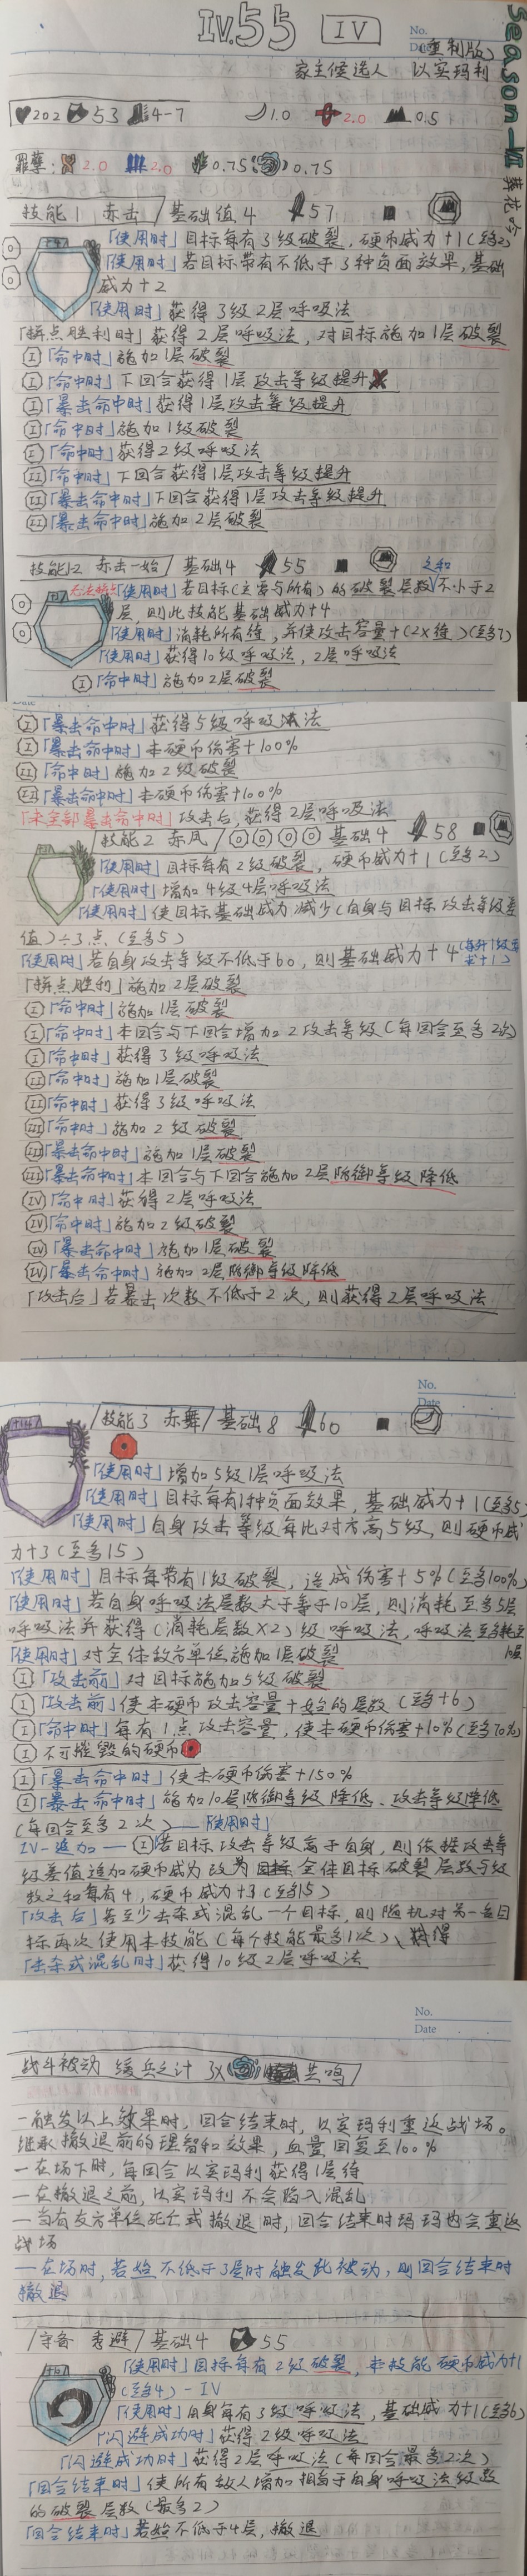 IV.55 IV
No.
Date
(重制版)
Season-VII 葬花吟
家主候选人 以实玛利
202 53 4-7 1.0 2.0 0.5
罪孽: 2.0 2.0 0.75 0.75
技能1 赤击 基础值4 57
「使用时」目标每有3级破裂,硬币威力+1(至多2)
「使用时」若目标带有不低于3种负面效果,基础
威力+2
「使用时」获得3级2层呼吸法
「拼点胜利时」获得2层呼吸法,对目标施加1层破裂
I「命中时」施加1层破裂
I「命中时」下回合获得1层攻击等级提升
I「暴击命中时」获得1层攻击等级提升
II「命中时」施加1级破裂
I「命中时」获得2级呼吸法
II「命中时」下回合获得1层攻击等级提升
II「暴击命中时」下回合获得1层攻击等级提升
II「暴击命中时」施加2层破裂
技能1-2 赤击-始 基础4 55
「使用时」若目标(主要与所有)的破裂层数之和不小于2
层,则此技能基础威力+4
「使用时」消耗所有待,并使攻击容量+(2×待)(至多7)
「使用时」获得10级呼吸法,2层呼吸法
I「命中时」施加2层破裂
I「暴击命中时」获得5级呼吸法
I「暴击命中时」本硬币伤害+100%
II「命中时」施加2级破裂
II「暴击命中时」本硬币伤害+100%
「未全部暴击命中时」攻击后,获得2层呼吸法
技能2 赤风 基础4 58
「使用时」目标每有2级破裂,硬币威力+1(至多2)
「使用时」增加4级4层呼吸法
「使用时」使目标基础威力减少(自身与目标攻击等级差
值)÷3点(至多5)
「使用时」若自身攻击等级不低于60,则基础威力+4
「拼点胜利」施加2层破裂
I「命中时」施加1层破裂
I「命中时」本回合与下回合增加2攻击等级(每回合至多2次)
I「命中时」获得3级呼吸法
II「命中时」施加1层破裂
II「命中时」获得3级呼吸法
III「命中时」施加2级破裂
III「暴击命中时」施加1层破裂
III「暴击命中时」本回合与下回合施加2层防御等级降低
IV「命中时」获得2层呼吸法
IV「命中时」施加2级破裂
IV「暴击命中时」施加1层破裂
IV「暴击命中时」施加2层防御等级降低
「攻击后」若暴击次数不低于2次,则获得2层呼吸法
No.
Date
技能3 赤舞 基础8 60
「使用时」增加5级1层呼吸法
「使用时」目标每有1种负面效果,基础威力+1(至多5
「使用时」自身攻击等级每比对方高5级,则硬币威
力+3(至多15)
「使用时」目标每带有1级破裂,造成伤害+5%(至多100%)
「使用时」若自身呼吸法层数大于等于10层,则消耗至多5层
呼吸法并获得(消耗层数×2)级呼吸法,呼吸法至多耗至
1层
「使用时」对全体敌方单位施加1层破裂
I「攻击前」对目标施加5级破裂
I「攻击前」使本硬币攻击容量+始的层数(至多+6)
I「命中时」每有1点攻击容量,使本硬币伤害+10%(至多70%)
I 不可摧毁的硬币
I「暴击命中时」使本硬币伤害+150%
I「暴击命中时」施加10层防御等级降低、攻击等级降低
(每回合至多2次)
IV-追加—I「使用时」若目标攻击等级高于自身,则依据攻击等
级差值追加硬币威力改为全体目标破裂层数与级
数之和每有4,硬币威力+3(至多15)
「攻击后」若至少击杀或混乱一个目标,则随机对另一名目
标再次使用本技能(每个技能最多1次)、获得
「击杀或混乱时」获得10级2层呼吸法
No.
Date
战斗被动 缓兵之计 3× 共鸣
—触发以上效果时,回合结束时,以实玛利重返战场。
继承撤退前的理智和效果,血量回复至100%
—在场下时,每回合以实玛利获得1层待
—在撤退之前,以实玛利不会陷入混乱
—当有友方单位死亡或撤退时,回合结束时玛玛也会重返
战场
—在场时,若始不低于3层时触发此被动,则回合结束时
撤退
守备 秀避 基础4 55
「使用时」目标每有2级破裂,本技能硬币威力+1
(至多4)-IV
「使用时」自身每有3级呼吸法,基础威力+1(至多6)
「闪避成功时」获得2级呼吸法
「闪避成功时」获得2层呼吸法(每回合最多2次)
「回合结束时」使所有敌人增加相当于自身呼吸法级数
的破裂层数(最多2)
「回合结束时」若始不低于4层,撤退